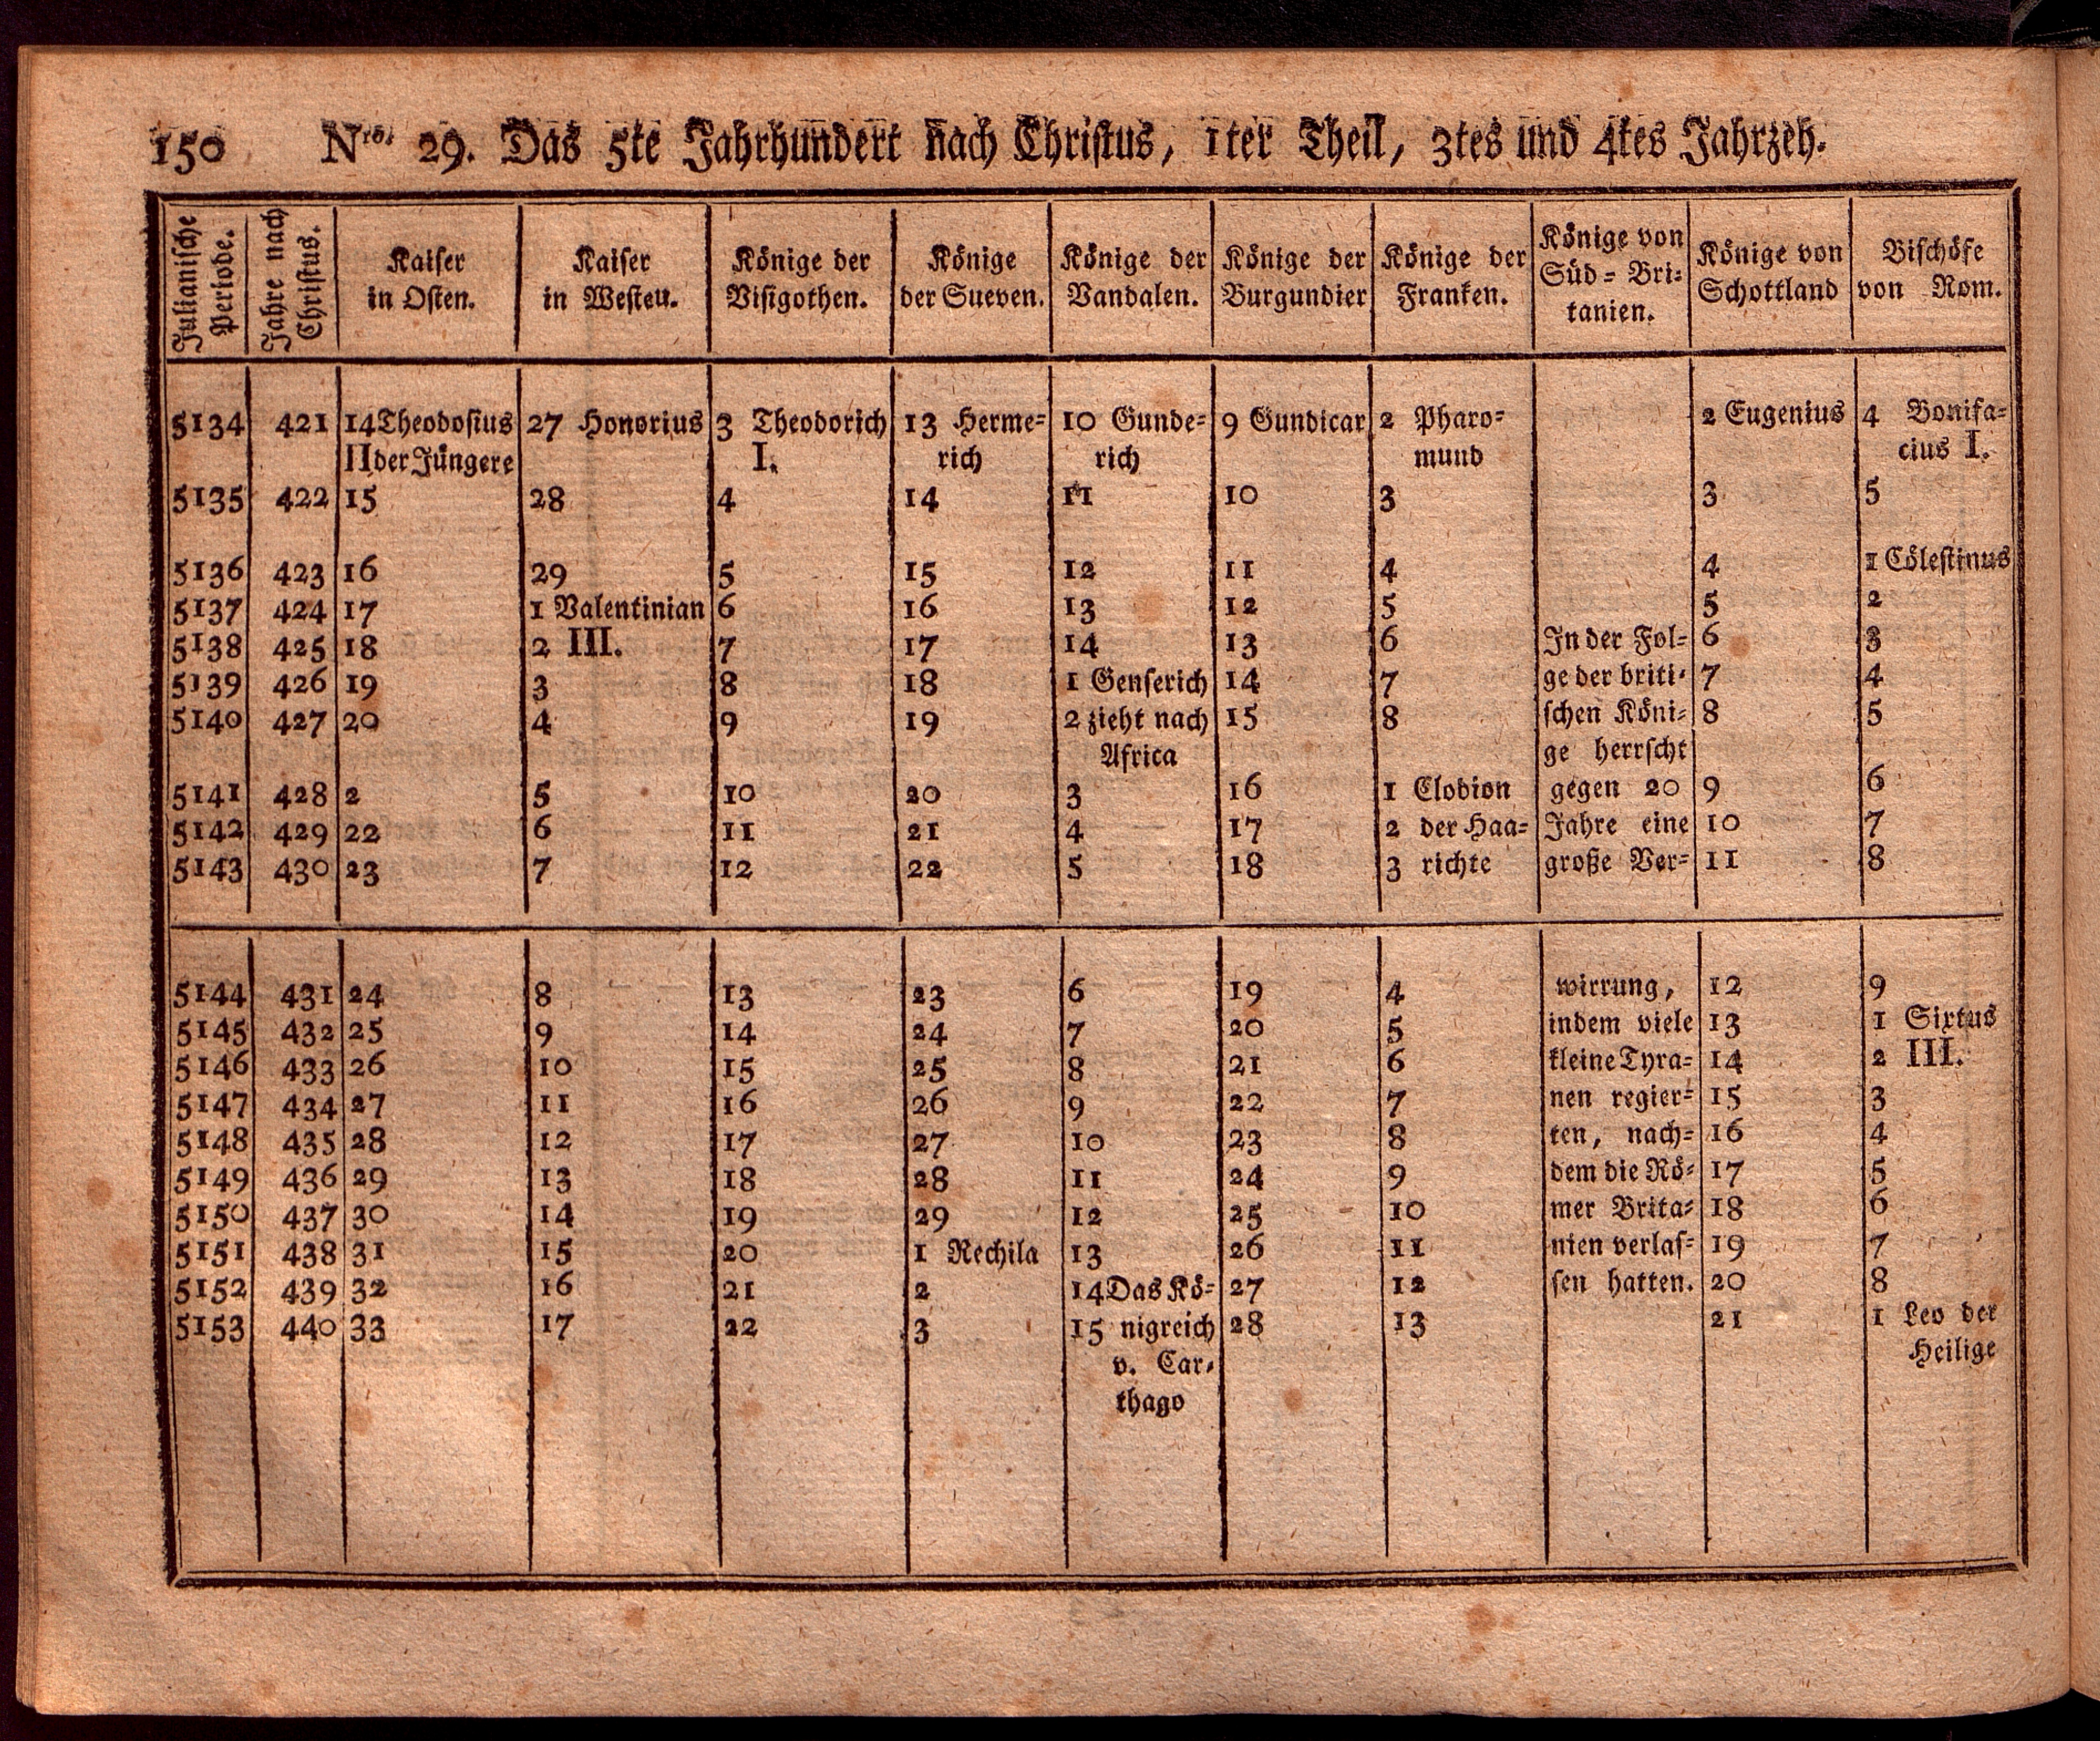 150 Nro. 29. Das 5te Jahrhundert nach Christus, 1ter Theil, 3tes und 4tes Jahrzeh.
Julianische Periode. | Jahre nach Christus. | Kaiser in Osten. | Kaiser in Westen. | Könige der Visigothen. | Könige der Sueven. | Könige der Vandalen. | Könige der Burgundier | Könige der Franken. | Könige von Süd-Britanien. | Könige von Schottland | Bischöfe von Rom.
5134 421 14 Theodosius 27 Honorius 3 Theodorich 13 Herme- 10 Gunde- 9 Gundicar 2 Pharo- 2 Eugenius 4 Bonifa-
II der Jüngere I. rich rich mund cius I.
5135 422 15 28 4 14 11 10 3 3 5
5136 423 16 29 5 15 12 11 4 4 1 Cölestinus
5137 424 17 1 Valentinian 6 16 13 12 5 5 2
5138 425 18 2 III. 7 17 14 13 6 In der Fol- 6 3
5139 426 19 3 8 18 1 Genserich 14 7 ge der briti- 7 4
5140 427 20 4 9 19 2 zieht nach 15 8 schen Köni- 8 5
Africa ge herrscht
5141 428 2 5 10 20 3 16 1 Clodion gegen 20 9 6
5142 429 22 6 11 21 4 17 2 der Haa- Jahre eine 10 7
5143 430 23 7 12 22 5 18 3 richte große Ver- 11 8
5144 431 24 8 13 23 6 19 4 wirrung, 12 9
5145 432 25 9 14 24 7 20 5 indem viele 13 1 Sixtus
5146 433 26 10 15 25 8 21 6 kleine Tyra- 14 2 III.
5147 434 27 11 16 26 9 22 7 nen regier- 15 3
5148 435 28 12 17 27 10 23 8 ten, nach- 16 4
5149 436 29 13 18 28 11 24 9 dem die Rö- 17 5
5150 437 30 14 19 29 12 25 10 mer Brita- 18 6
5151 438 31 15 20 1 Rechila 13 26 11 nien verlas- 19 7
5152 439 32 16 21 2 14 Das Kö- 27 12 sen hatten. 20 8
5153 440 33 17 22 3 15 nigreich 28 13 21 1 Leo der
v. Car- Heilige
thago